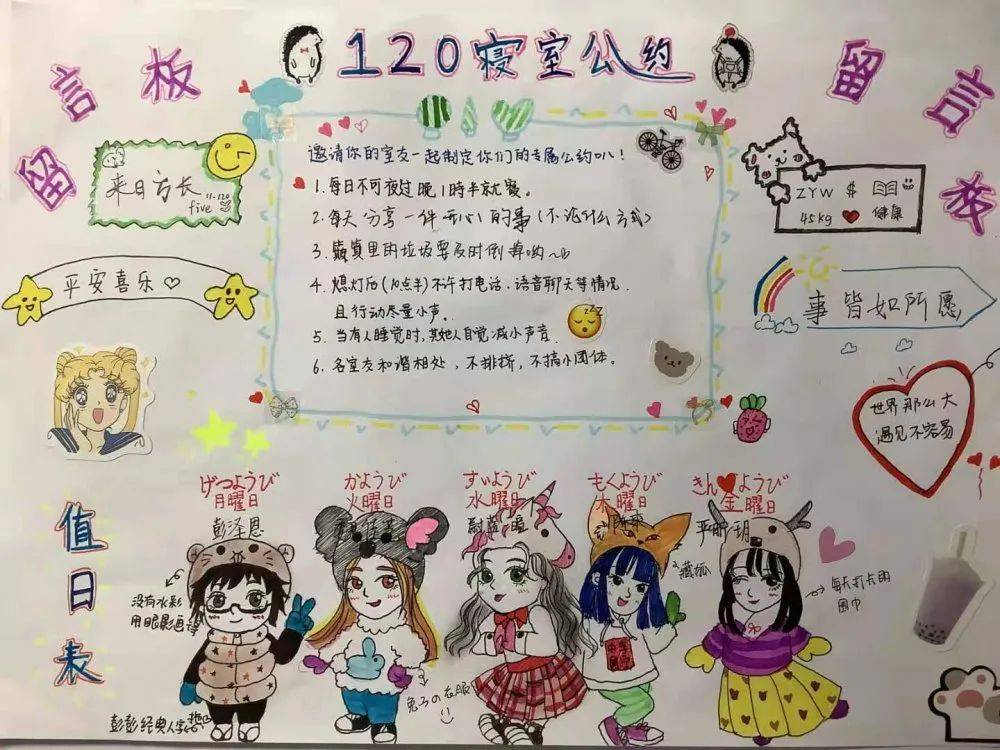 120寝室公约
留言板
留言板
来日方长
11.120
five
平安喜乐♡
邀请你的室友一起制定你们的专属公约叭！
1. 每日不可夜过晚1時半就寝。
2. 每天分享一件开心的事(不论什么方式)
3. 里的垃圾要及时倒掉哟~
4. 熄灯后(10点半)不许打电话、语音聊天等情况.
且行动尽量小声。
5. 当有人睡觉时,其她人自觉减小声音.
6. 各室友和谐相处，不排挤，不搞小团体。
ZZZ
ZYW $
45kg 健康
事皆如所愿
世界那么大
遇见不容易
值日表
げつようび
月曜日
彭泽恩
かようび
火曜日
すいようび
水曜日
もくようび
木曜日
きんようび
金曜日
没有水彩
用眼影画得
彭彭经典人字
兔子の衣服
藏狐
每天打卡用
围巾